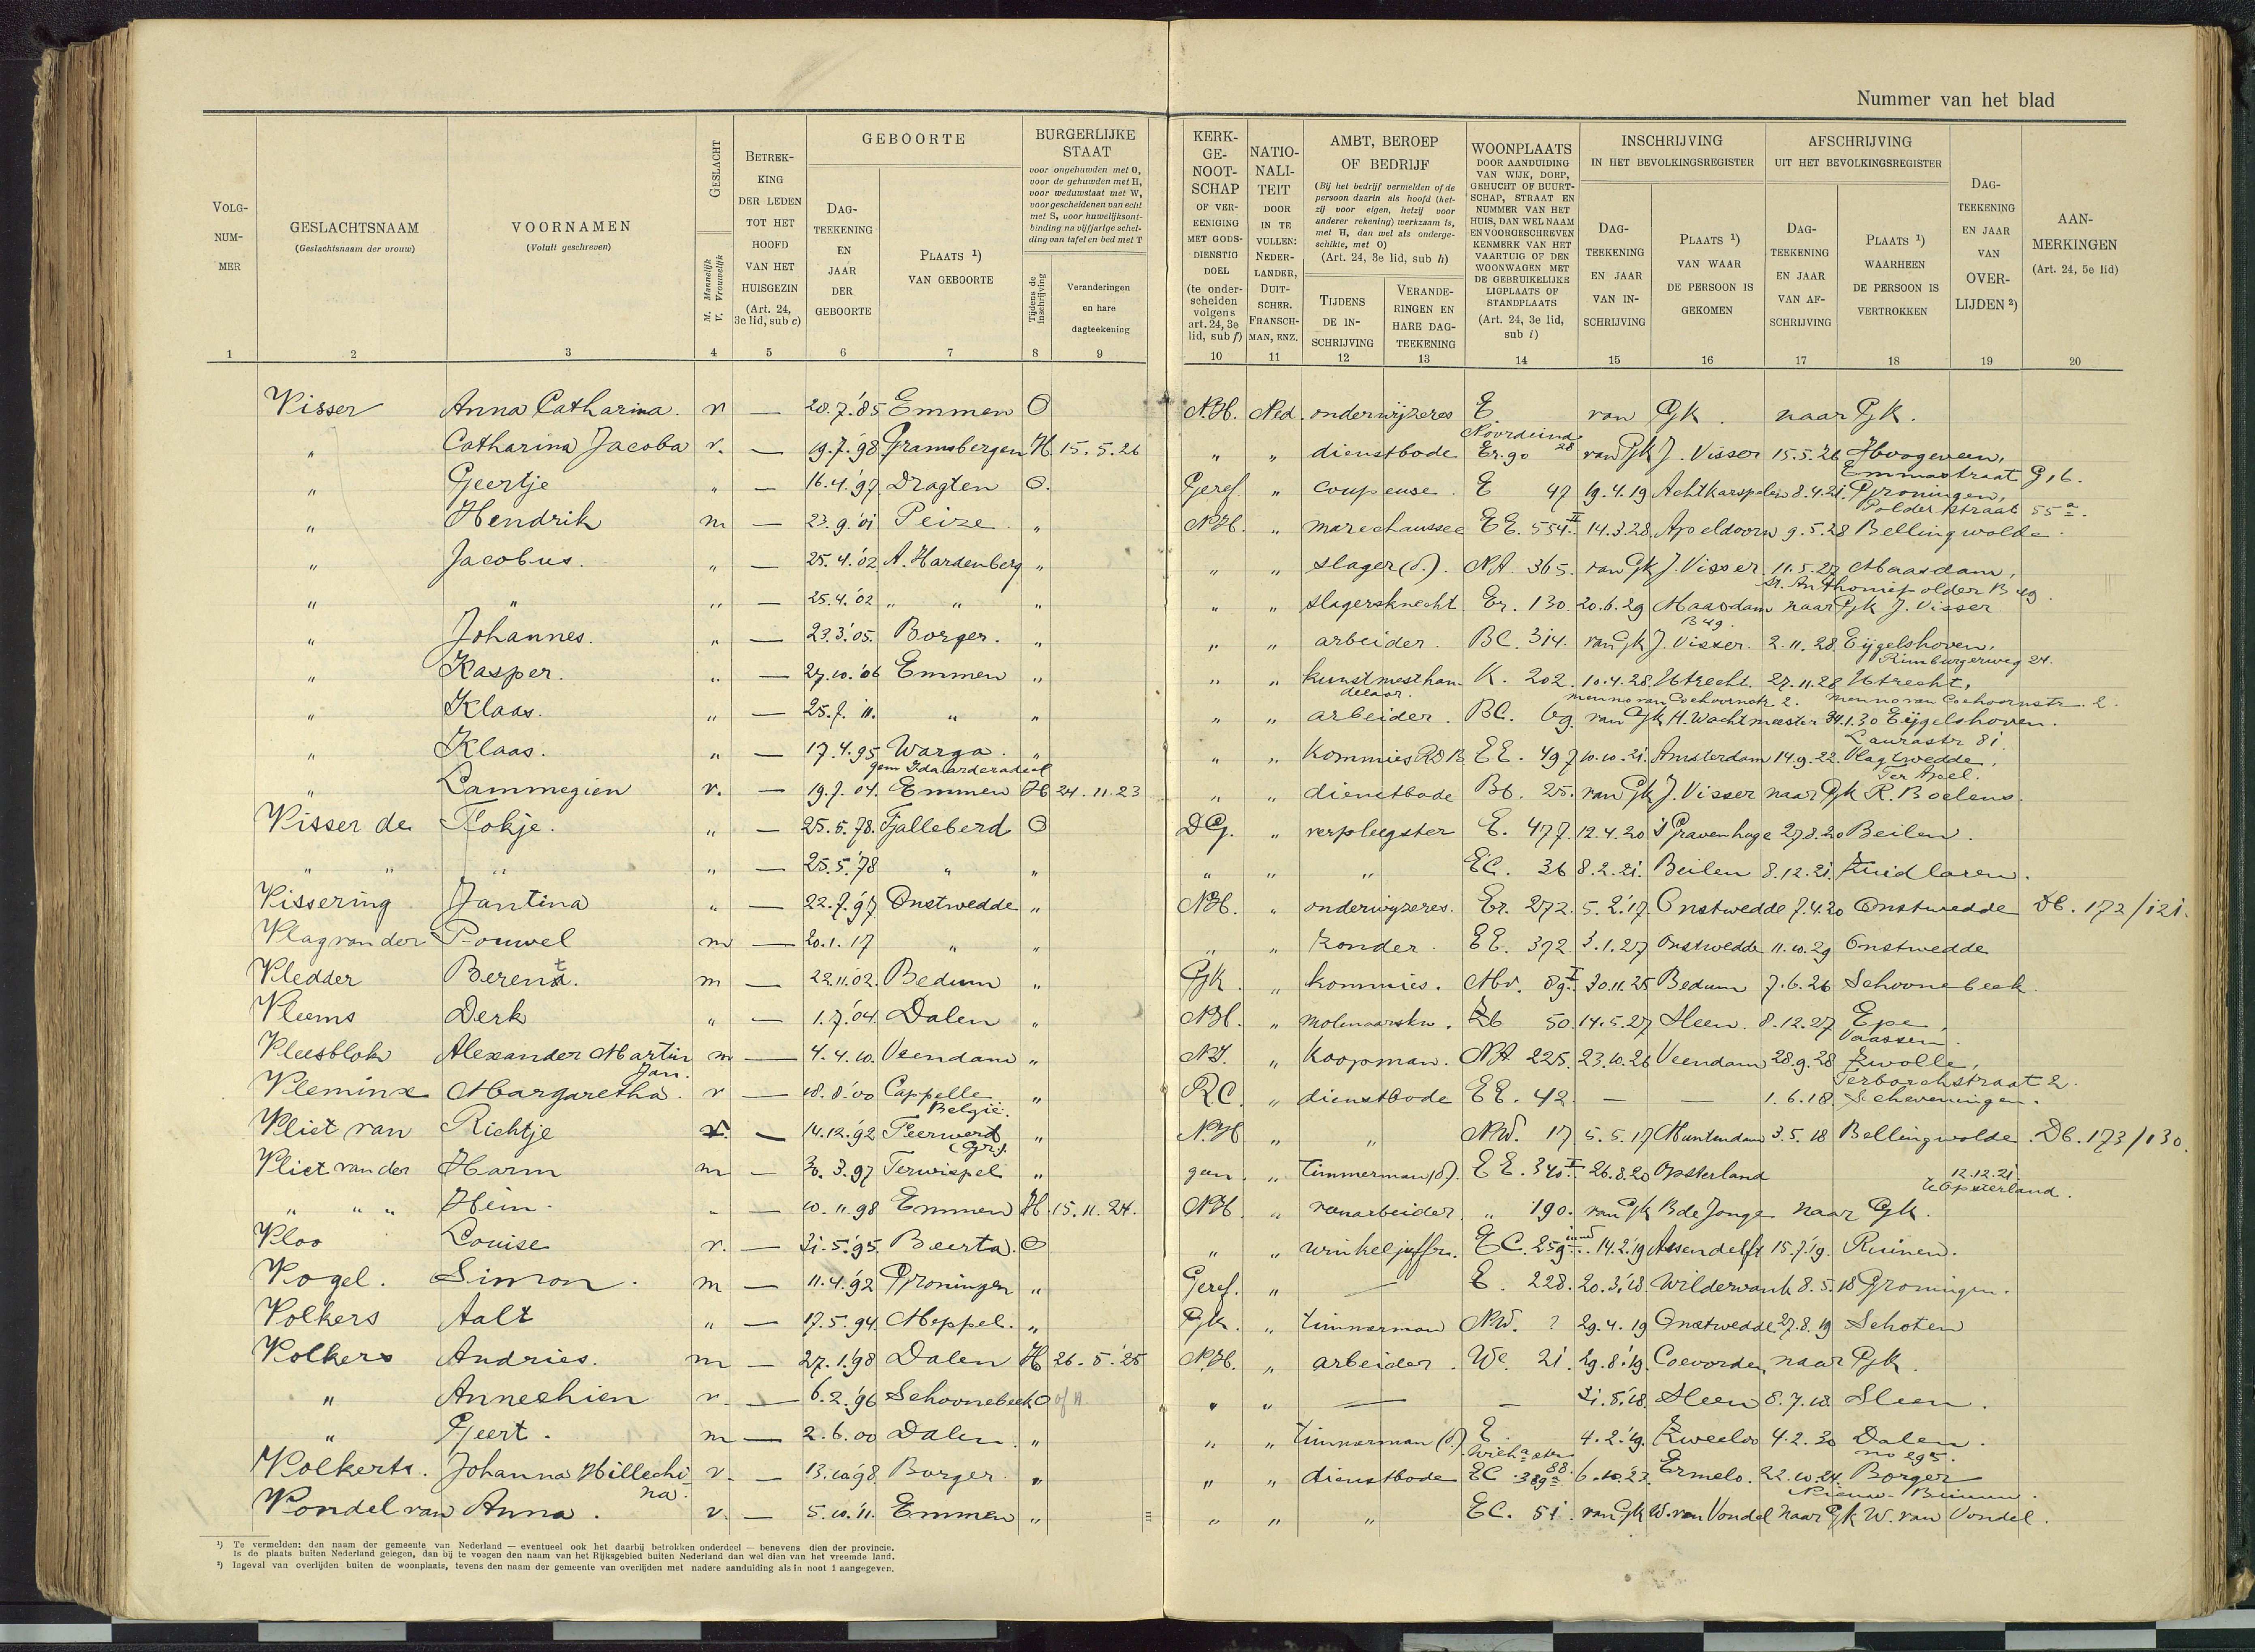 Nummer van het blad
VOLG-NUM-MER
GESLACHTSNAAM (Geslachtsnaam der vrouw)
VOORNAMEN (Voluit geschreven)
GESLACHT M. Mannelijk V. Vrouwelijk
BETREK-KING DER LEDEN TOT HET HOOFD VAN HET HUISGEZIN (Art. 24, 3e lid, sub c)
GEBOORTE
DAG-TEEKENING EN JAAR DER GEBOORTE
PLAATS ¹) VAN GEBOORTE
BURGERLIJKE STAAT
voor ongehuwden met O, voor de gehuwden met H, voor weduwstaat met W, voor gescheidenen van echt met S, voor huwelijksont-binding na vijfjarige schei-ding van tafel en bed met T
Tijdens de inschrijving
Veranderingen en hare dagteekening
KERK-GE-NOOT-SCHAP OF VER-EENIGING MET GODS-DIENSTIG DOEL (te onder-scheiden volgens art. 24, 3e lid, sub f)
NATIO-NALI-TEIT DOOR IN TE VULLEN: NEDER-LANDER, DUIT-SCHER, FRANSCH-MAN, ENZ.
AMBT, BEROEP OF BEDRIJF
(Bij het bedrijf vermelden of de persoon daarin als hoofd (het-zij voor eigen, hetzij voor anderer rekening) werkzaam is, met H, dan wel als onderge-schikte, met O) (Art. 24, 3e lid, sub h)
TIJDENS DE IN-SCHRIJVING
VERANDE-RINGEN EN HARE DAG-TEEKENING
WOONPLAATS DOOR AANDUIDING VAN WIJK, DORP, GEHUCHT OF BUURT-SCHAP, STRAAT EN NUMMER VAN HET HUIS, DAN WEL NAAM EN VOORGESCHREVEN KENMERK VAN HET VAARTUIG OF DEN WOONWAGEN MET DE GEBRUIKELIJKE LIGPLAATS OF STANDPLAATS (Art. 24, 3e lid, sub i)
INSCHRIJVING IN HET BEVOLKINGSREGISTER
DAG-TEEKENING EN JAAR VAN IN-SCHRIJVING
PLAATS ¹) VAN WAAR DE PERSOON IS GEKOMEN
AFSCHRIJVING UIT HET BEVOLKINGSREGISTER
DAG-TEEKENING EN JAAR VAN AF-SCHRIJVING
PLAATS ¹) WAARHEEN DE PERSOON IS VERTROKKEN
DAG-TEEKENING EN JAAR VAN OVER-LIJDEN ²)
AAN-MERKINGEN (Art. 24, 5e lid)
1 2 3 4 5 6 7 8 9 10 11 12 13 14 15 16 17 18 19 20
Visser Anna Catharina. v — 28.7.'85 Emmen O N.H. Ned. onderwijzeres E van Gk. naar Gk.
" Catharina Jacoba v. — 19.7.'98 Gramsbergen H. 15.5.26 " " dienstbode Noordeind 28 Er. 90 van Gk J. Visser 15.5.26 Hoogeveen, Emmastraat G 16.
" Geertje " — 16.4.'97 Dragten O. Geref. " coupeuse. E 47 19.4.19 Achtkarspelen 8.4.21. Groningen, Polderstraat 55 a.
" Hendrik m — 23.9.'01 Peize. " N.H. " marechaussee EE. 554 II 14.3.28 Apeldoorn 9.5.28 Bellingwolde.
" Jacobus. " — 25.4.'02 A. Hardenberg " " " slager (o.). NA. 365. van Gk J. Visser. 11.5.27 Maasdam, St. Anthoniepolder B 49.
" " " — 25.4.'02 " " " " " slagersknecht Er. 130. 20.6.29 Maasdam B 49. naar Gk J. Visser
" Johannes. " — 23.3.'05. Borger. " " " arbeider. BC. 314. van Gk J. Visser. 2.11.28 Eijgelshoven, Rimburgerweg 24.
" Kasper. " — 27.10.'06 Emmen " " " kunstmesthandelaar. K. 202. 10.4.28 Utrecht. menno van Coehoornstr 2. 27.11.28 Utrecht, menno van Coehoornstr. 2.
" Klaas. " — 25.7.'11. " " " " arbeider. BC. 69. van Gk H. Wachtmeester 24.1.30 Eijgelshoven. Laurastr 81.
" Klaas. " — 17.4.95 Warga. gem Idaarderadeel " " " kommies RDB EE. 497 10.10.21. Amsterdam 14.9.22. Vlagtwedde, Ter Apel.
" Lammegien v. — 19.7.04. Emmen H 24.11.23 " " dienstbode Bb. 25. van Gk J. Visser naar Gk R. Boelens.
Visser de Fokje. " — 25.5.'78. Tjalleberd O DG. " verpleegster E. 477. 12.4.20 's Gravenhage 27.8.20 Beilen.
" " " " — 25.5.'78 " " " " " EC. 36 8.2.21. Beilen 8.12.21. Zuidlaren.
Vissering Jantina " — 22.7.'97 Onstwedde " N.H. " onderwijzeres. Er. 272. 5.2.'17. Onstwedde 7.4.20 Onstwedde Db. 172/121.
Vlag van der Pouwel m — 20.1.17 " " " " zonder. EE. 372. 3.1.27 Onstwedde 11.10.29 Onstwedde
Vledder Berent. m — 22.11.'02. Bedum " Gk. " kommies. Mv. 89 I 30.11.25 Bedum 7.6.26 Schoonebeek.
Vleems Derk " — 1.7.'04. Dalen " N.H. " molenaarskn. Zb 50. 14.5.27 Sleen. 8.12.27 Epe, Vaassen.
Vleesblok Alexander Martin Jan. m — 4.4.10. Veendam " N.I. " koopman. NA. 225. 23.10.26 Veendam 28.9.28 Zwolle, Terborchstraat 2.
Vleminx Margaretha. v — 18.8.'00 Cappelle België. " R.C. " dienstbode EE. 42. — — 1.6.18. Scheveningen.
Vliet van Richtje v. — 14.12.'92 Feerwerd (Gr.). " N.H " " NW. 17 5.5.17 Muntendam 3.5.18 Bellingwolde. Db. 173/130.
Vliet van der Harm m — 30.3.97 Terwispel " gen. " timmerman (o.). EE. 340 I 26.8.20 Opsterland 12.12.21. te Opsterland.
" " " Hein. " — 10.11.98 Emmen H. 15.11.24. N.H. " veenarbeider. " 190. van Gk B de Jonge naar Gk.
Vloo Louise v. — 31.5.'95. Beerta. O " " winkeljuffr. EC. 259 14.2.'19 Assendelft 15.7.'19. Ruinen.
Vogel. Simon. m — 11.4.'92 Groningen " Geref. " — E. 228. 20.3.'18. Wildervank 8.5.18 Groningen.
Volkers Aalt " — 17.5.94. Meppel. " Gk. " timmerman NW. ? 29.4.19 Onstwedde 27.8.19 Schoten
Volkers Andries. m — 27.1.'98 Dalen H 26.5.'25 N.H. " arbeider. We. 21. 29.8.'19. Coevorden naar Gk.
" Annechien v. — 6.2.'96 Schoonebeek O of H " " — — 31.5.'18. Sleen 8.7.18. Sleen.
" Geert. m — 2.6.00 Dalen. " " " timmerman (o.) E. 4.2.'19. Zweeloo 4.2.30 Dalen. no 295.
Volkerts. Johanna Hillechina. v. — 13.10.'98. Borger. " " " dienstbode EC. 389 a 88. 6.10.'23. Ermelo. 22.10.24. Borger Nieuw-Buinen.
Vondel van Anna. v. — 5.10.'11. Emmen " " " " EC. 51. van Gk W. van Vondel naar Gk W. van Vondel.
¹) Te vermelden: den naam der gemeente van Nederland — eventueel ook het daarbij betrokken onderdeel — benevens dien der provincie.
Is de plaats buiten Nederland gelegen, dan bij te voegen den naam van het Rijksgebied buiten Nederland dan wel dien van het vreemde land.
²) Ingeval van overlijden buiten de woonplaats, tevens den naam der gemeente van overlijden met nadere aanduiding als in noot 1 aangegeven.